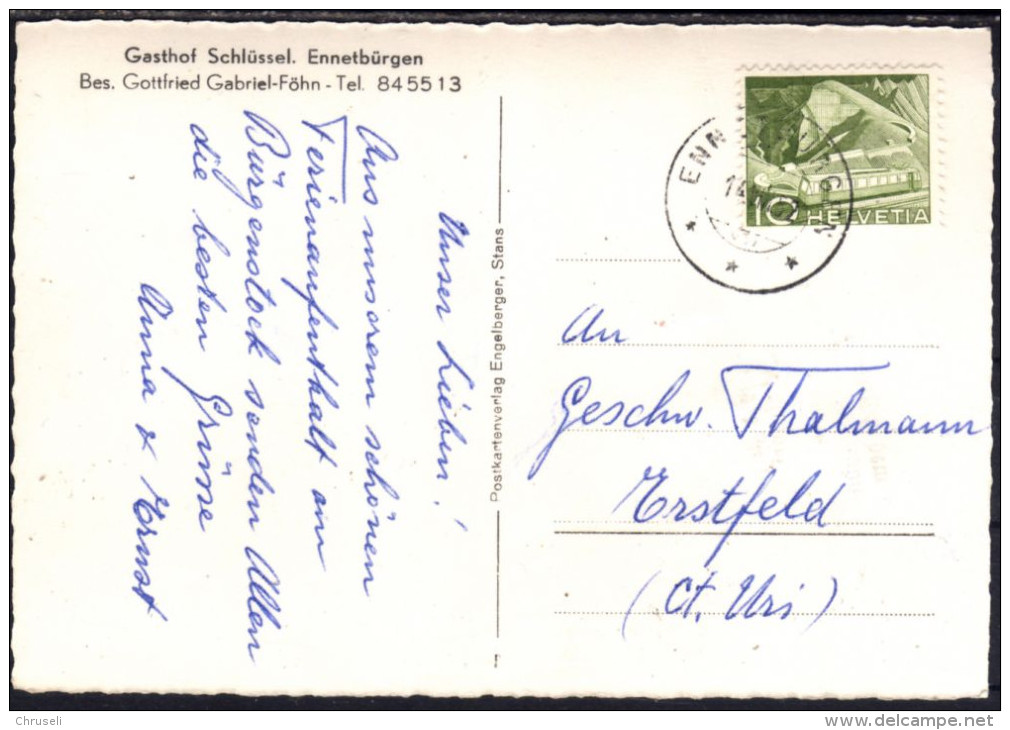 Gasthof Schlüssel. Ennetbürgen
Bes. Gottfried Gabriel-Föhn - Tel. 845513
Unser Lieben!
Aus unserem schönen
Ferienaufenthalt am
Bürgenstock senden Allen
die besten Grüsse
Anna & Ernst
Postkartenverlag Engelberger, Stans
10 HELVETIA
An
Geschw. Thalmann
Erstfeld
(Ct. Uri)
Chruseli
www.delcampe.net